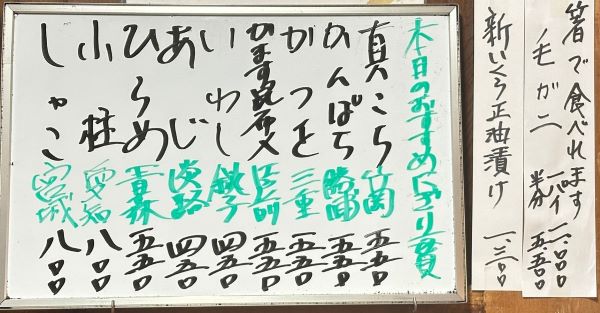 箸で食べれます
毛ガニ 一パイ 一一.〇〇〇
半分 五.五〇〇
新いくら正油漬け 一.三〇〇
本日のおすすめにぎり一貫
真こち 竹岡 五五〇
かんぱち 勝浦 五五〇
かつを 三重 五五〇
かます昆布〆 五五〇
いわし 銚子 四五〇
あじ 淡路 四五〇
ひらめ 青森 五五〇
小柱 愛知 八〇〇
しゃこ 宮城 八〇〇